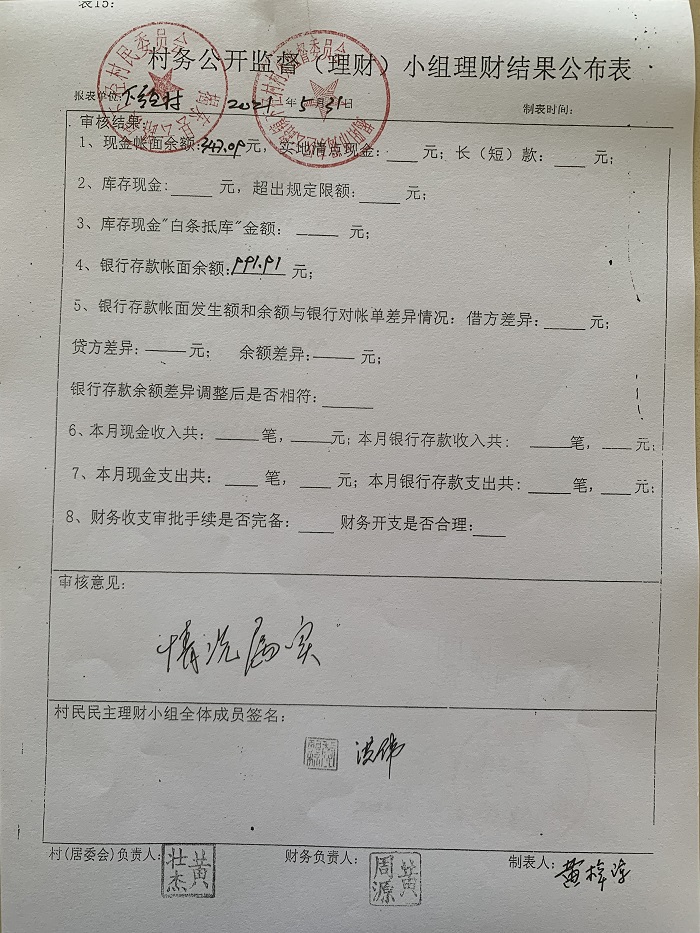 表15:
村务公开监督（理财）小组理财结果公布表
报表单位: 下径村 2021年5月31日 制表时间:
审核结果:
1、现金帐面余额:347.09元，实地清点现金: ___ 元；长（短）款: ___ 元；
2、库存现金: ___ 元，超出规定限额: ___ 元；
3、库存现金"白条抵库"金额: ___ 元；
4、银行存款帐面余额:991.91 元；
5、银行存款帐面发生额和余额与银行对帐单差异情况: 借方差异: ___ 元；
贷方差异: ___ 元； 余额差异: ___ 元；
银行存款余额差异调整后是否相符: ___
6、本月现金收入共: ___ 笔，___元；本月银行存款收入共: ___笔，___ 元；
7、本月现金支出共: ___ 笔，___ 元；本月银行存款支出共: ___笔，___ 元；
8、财务收支审批手续是否完备: ___ 财务开支是否合理: ___
审核意见:
情况属实
村民民主理财小组全体成员签名:
洪伟
村(居委会)负责人: 黄壮杰 财务负责人: 黄周源 制表人: 黄梓